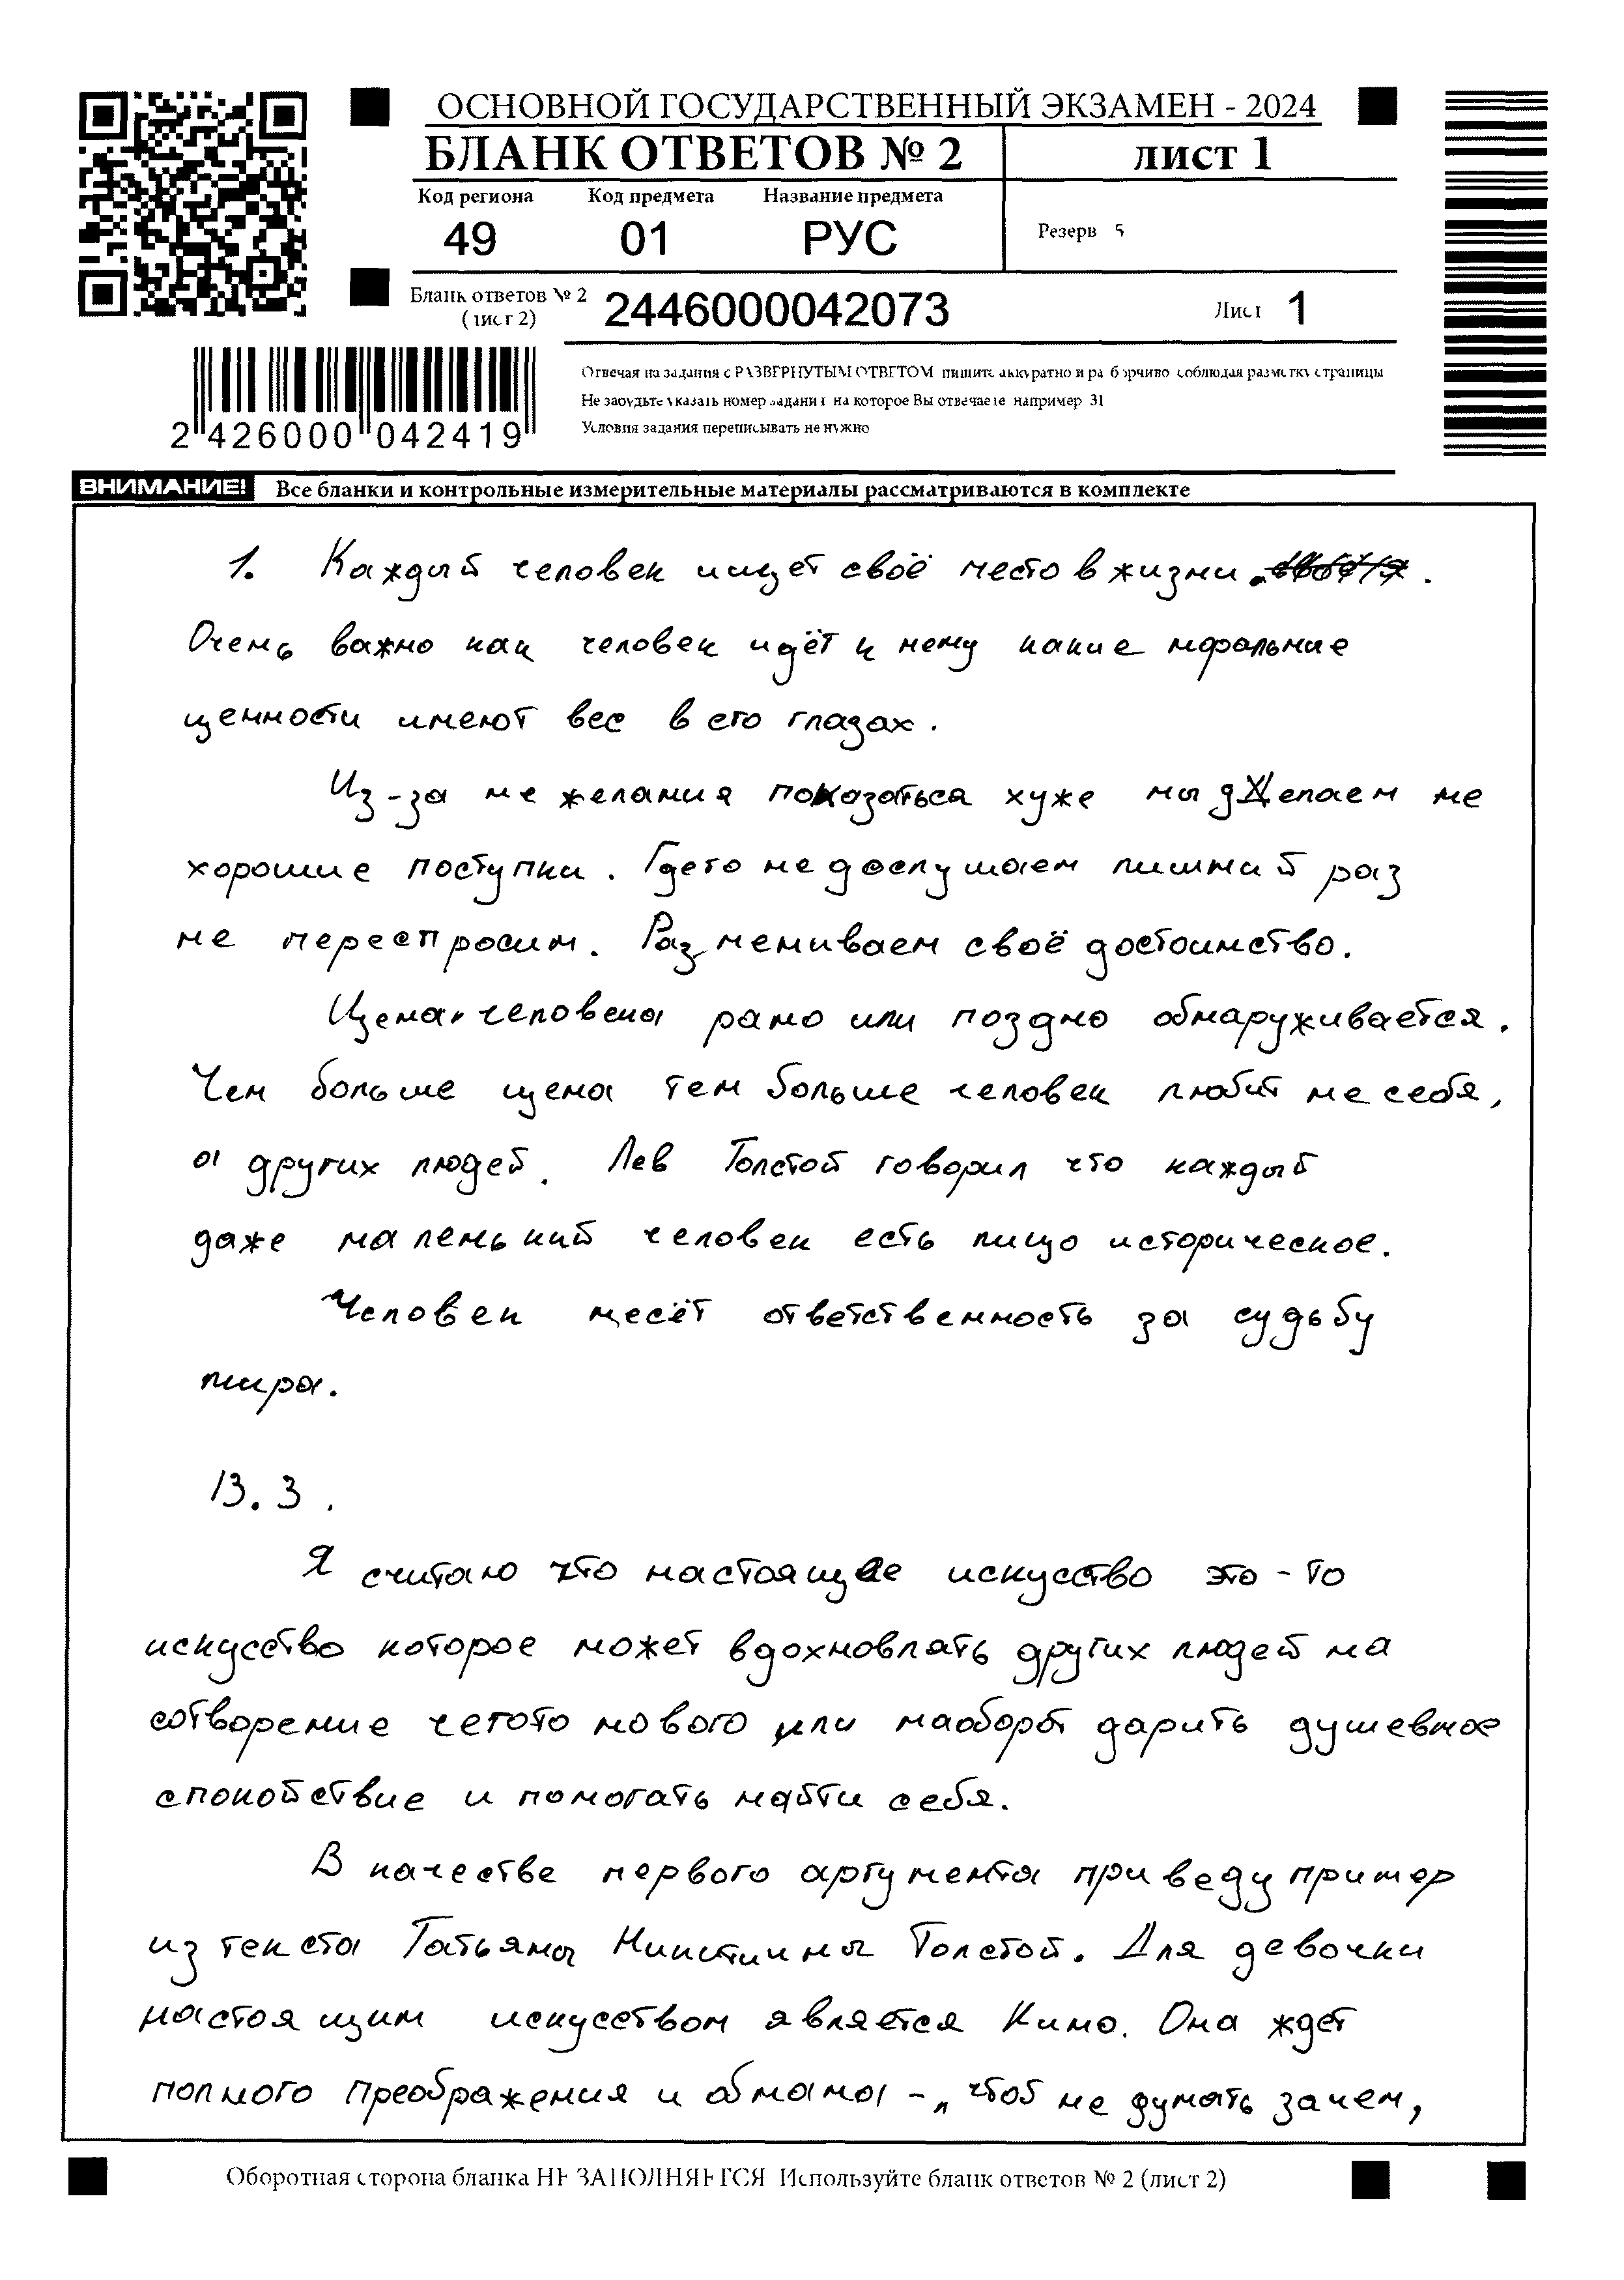 ОСНОВНОЙ ГОСУДАРСТВЕННЫЙ ЭКЗАМЕН - 2024
БЛАНК ОТВЕТОВ № 2 лист 1
Код региона Код предмета Название предмета
49 01 РУС
Резерв 5
Бланк ответов № 2
(лист 2)
2446000042073
Лист 1
2 426000 042419
Отвечая на задания с РАЗВЕРНУТЫМ ОТВЕТОМ пишите аккуратно и разборчиво соблюдая разметку страницы
Не забудьте указать номер задания на которое Вы отвечаете например 31
Условия задания переписывать не нужно
ВНИМАНИЕ! Все бланки и контрольные измерительные материалы рассматриваются в комплекте
1. Каждый человек ищет своё место в жизни .
Очень важно как человек идёт к нему какие моральные
ценности имеют вес в его глазах.
Из-за не желания показаться хуже мы делаем не
хорошие поступки. Гдето не дослушаем лишний раз
не переспросим. Размениваем своё достоинство.
Цена человека рано или поздно обнаруживается.
Чем больше цена тем больше человек любит не себя,
а других людей. Лев Толстой говорил что каждый
даже маленький человек есть лицо историческое.
Человек несёт ответственность за судьбу
мира.
13.3.
Я считаю что настоящее искусство это - то
искусство которое может вдохновлять других людей на
сотворение чегото нового или наоборот дарить душевное
спокойствие и помогать найти себя.
В качестве первого аргумента приведу пример
из текста Татьяны Никитичны Толстой. Для девочки
настоящим искусством является Кино. Она ждет
полного преображения и обмана - „чтоб не думать зачем,
Оборотная сторона бланка НЕ ЗАПОЛНЯЕТСЯ Используйте бланк ответов № 2 (лист 2)